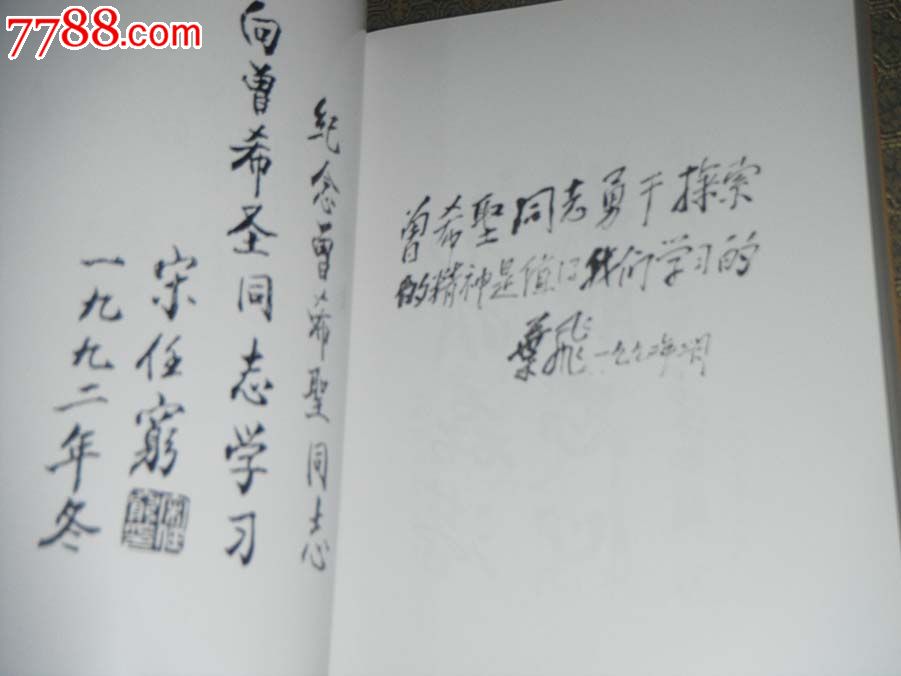 7788.com
纪念曾希聖同志
向曾希圣同志学习
宋任窮
一九九二年冬
曾希聖同志勇于探索
的精神是值得我们学习的
葉飛 一九九二年二月